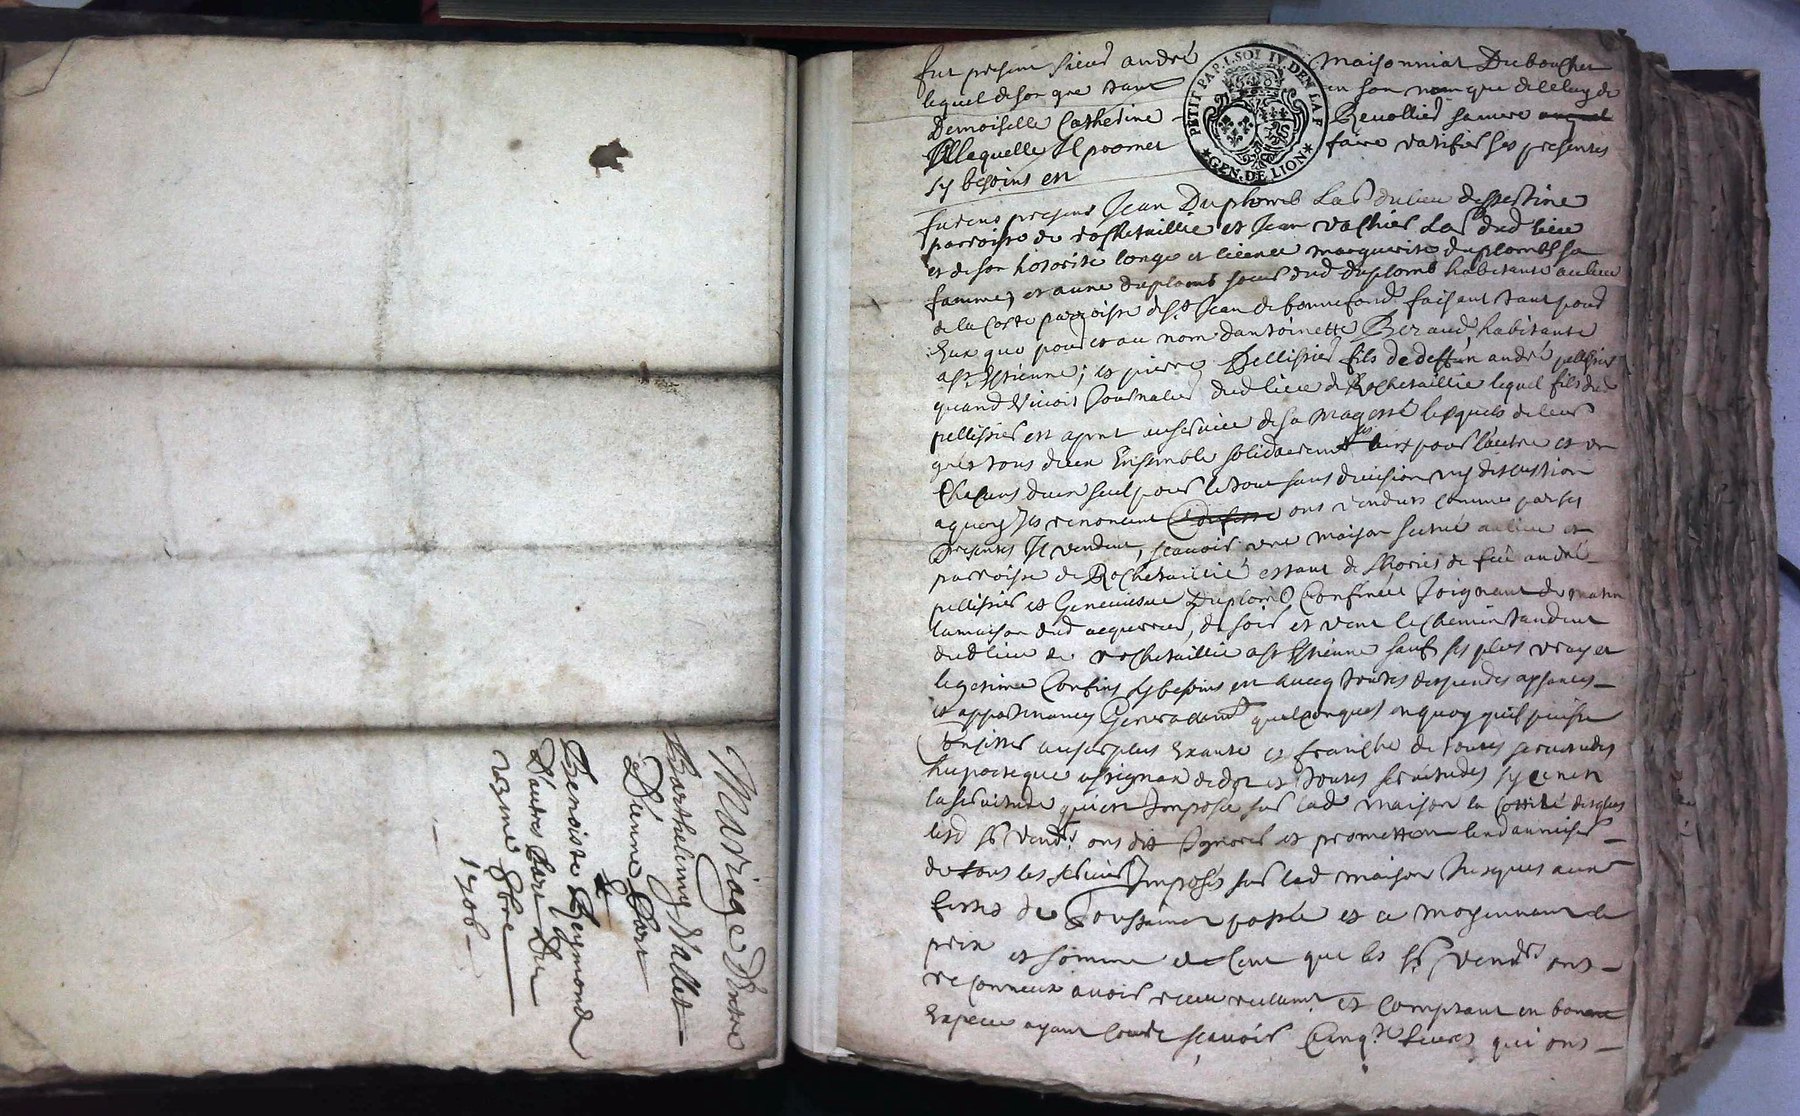 Mariage D'entre
Barthelemy Vallet
D'une part
Benoiste Reymond
D'autre part Du
9bre
1706
PETIT PAP. 1. SOL IV. DEN. LA F.
★ GEN. DE LION ★
fut present Sieur andré Maisonnial Duboucher
lequel de son gre tant en son nom que de celuy de
Demoiselle Catherine Revollier sa mere
A laquelle Il promet faire ratifier ses presentes
sy besoins est
furent presens Jean Duplomb Lab. du lieu
parroisse de rochetaillie et Jean vachier Lab. dud lieu
et de son hotorité congé et licence marguerite duplomb sa
famme, et anne duplomb soeur dud duplomb habitante au lieu
de la Coste parroisse de St Jean de bonnefond faisant tant pour
Eux que pour et au nom dantoinette Beraud habitante
a St Estienne; et pierre Pellissier fils de deffun andré pellissier
quand vivoit Journalier dud lieu de Rochetaillie lequel fils dud
pellissier est apnt au service de sa magesté lesquels de leur
grés tous deux Ensemble solidairemt lun pour lautre et un
Chascuns deux seul pour le tout sans division ny discussion
a quoy Ils renoncent ont vendus comme par ses
presentes Il vendent, scavoir une maison scitué au lieu et
parroisse de Rochetaillié estant de Moriés de feu andré
pellissier et Genevieve Duplomb Confinée Joignant de matin
la maison dud acquereur, de soir et vent le chemin tandent
dud lieu de rochetaillie a St Estienne sauf ses plus vrays et
legitime Confins sy besoins est avecq toutes
et appartenances Generalemt quelconques en quoy quil puisse
Consister au surplus Exante et franche de toutes servitudes
hupoteque et toutes servitudes
la servitude qui est Imposé sur lad maison la Cottité desquels
lesd Srs vendrs ons dit Ignorer et promettent
de tous les servis Imposés sur lad maison Jusques a une
festes de Toussaint passée et ce moyennant le
prix et somme de Cent que les Srs vendrs ons
reConneux avoir receu reelemt et Comptant en bonne
Expece ayant Cours scavoir Cinqte livres qui ons